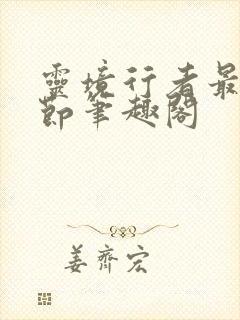 靈境行者最
節筆趣閣
姜齊宏